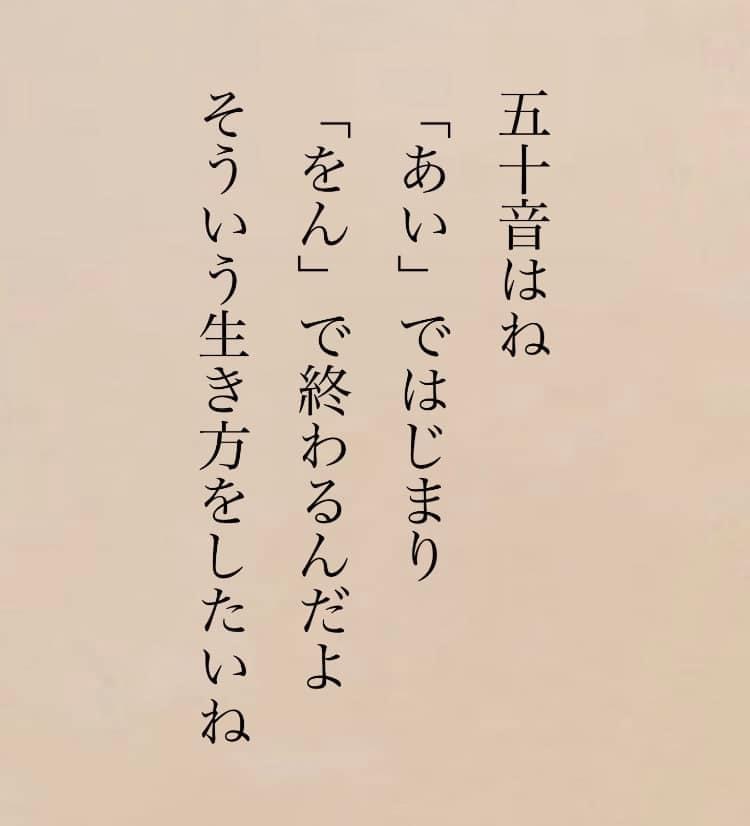 五十音はね
「あい」ではじまり
「をん」で終わるんだよ
そういう生き方をしたいね